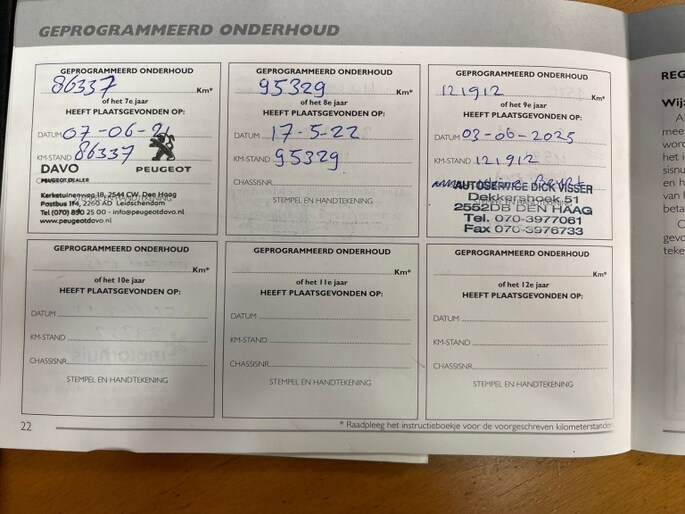 GEPROGRAMMEERD ONDERHOUD
GEPROGRAMMEERD ONDERHOUD
86337 Km*
of het 7e jaar
HEEFT PLAATSGEVONDEN OP:
DATUM 07-06-21
KM-STAND 86337
DAVO PEUGEOT
PEUGEOT DEALER
Kerketuinenweg 18, 2544 CW Den Haag
Postbus 114, 2260 AD Leidschendam
Tel (070) 890 25 00 - info@peugeotdavo.nl
www.peugeotdavo.nl
GEPROGRAMMEERD ONDERHOUD
95329 Km*
of het 8e jaar
HEEFT PLAATSGEVONDEN OP:
DATUM 17-5-22
KM-STAND 95329
CHASSISNR.
STEMPEL EN HANDTEKENING
GEPROGRAMMEERD ONDERHOUD
121912 Km*
of het 9e jaar
HEEFT PLAATSGEVONDEN OP:
DATUM 03-06-2025
KM-STAND 121912
AUTOSERVICE DICK VISSER
Dekkershoek 51
2552DB DEN HAAG
Tel. 070-3977061
Fax 070-3976733
GEPROGRAMMEERD ONDERHOUD
Km*
of het 10e jaar
HEEFT PLAATSGEVONDEN OP:
DATUM
KM-STAND
CHASSISNR.
STEMPEL EN HANDTEKENING
GEPROGRAMMEERD ONDERHOUD
Km*
of het 11e jaar
HEEFT PLAATSGEVONDEN OP:
DATUM
KM-STAND
CHASSISNR.
STEMPEL EN HANDTEKENING
GEPROGRAMMEERD ONDERHOUD
Km*
of het 12e jaar
HEEFT PLAATSGEVONDEN OP:
DATUM
KM-STAND
CHASSISNR.
STEMPEL EN HANDTEKENING
22
* Raadpleeg het instructieboekje voor de voorgeschreven kilometerstanden
REG
Wijz